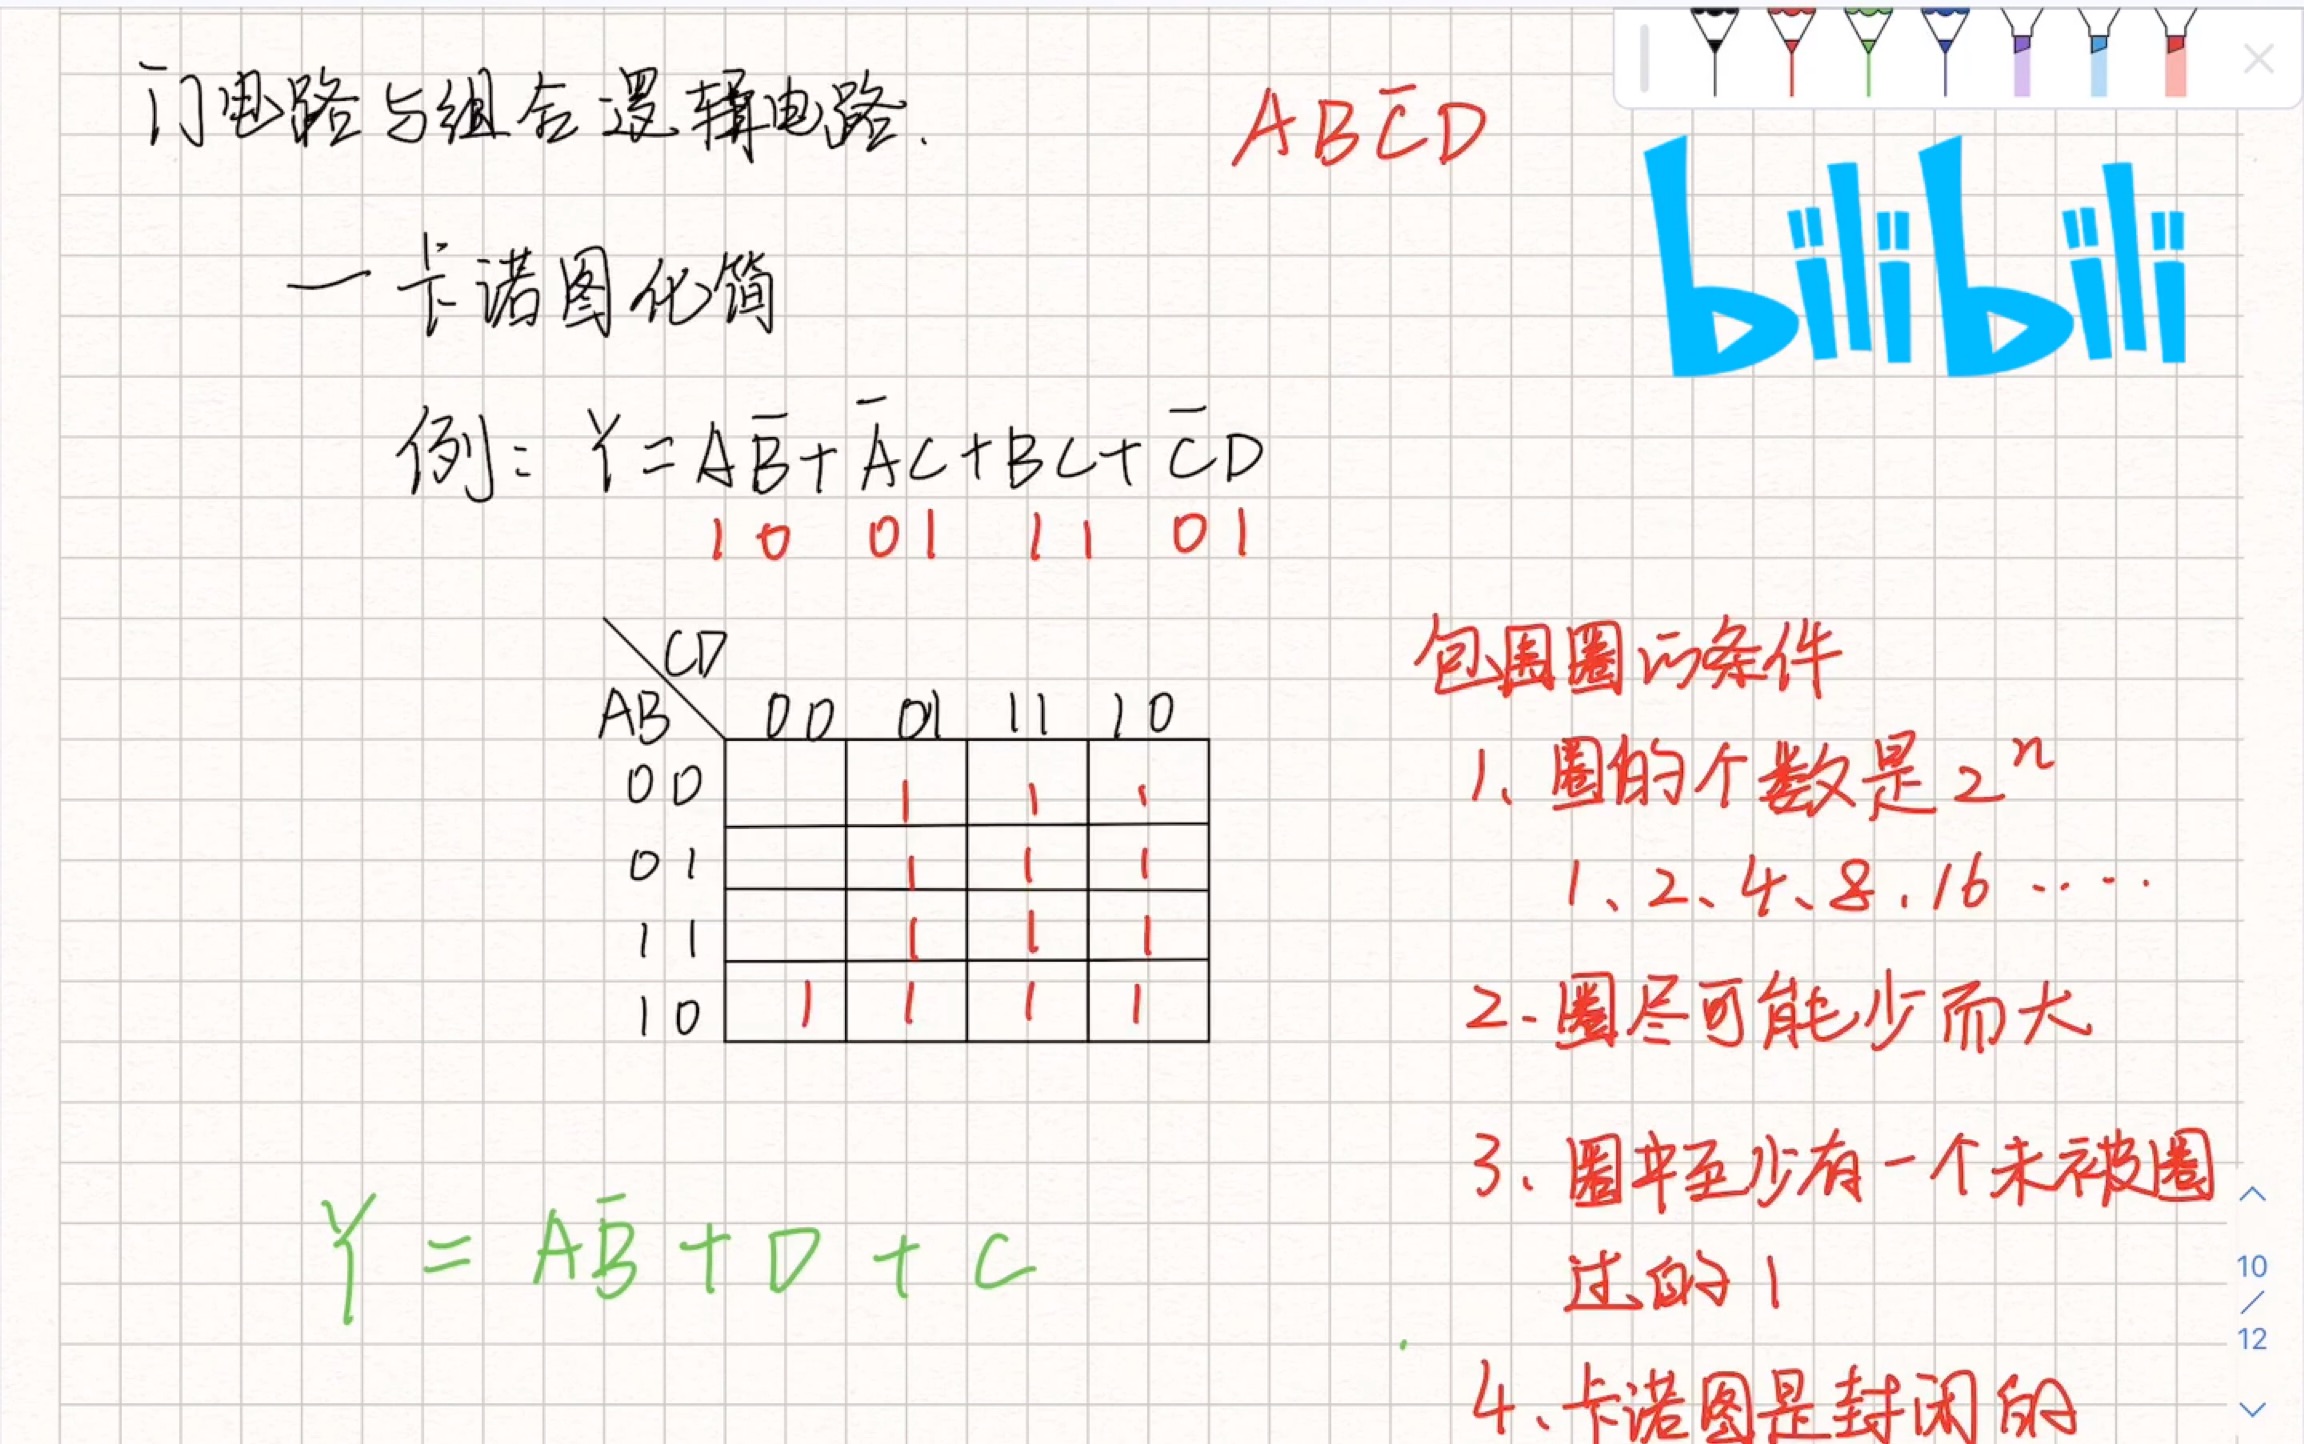 门电路与组合逻辑电路.
ABC̅D
bilibili
一卡诺图化简
例: Y=AB̅+A̅C+BC+C̅D
10 01 11 01
CD
AB 00 01 11 10
00 1 1 1
01 1 1 1
11 1 1 1
10 1 1 1 1
Y=AB̅+D+C
包围圈的条件
1、圈的个数是2ⁿ
1、2、4、8、16……
2.圈尽可能少而大
3、圈中至少有一个未被圈
过的1
4、卡诺图是封闭的
10
/
12